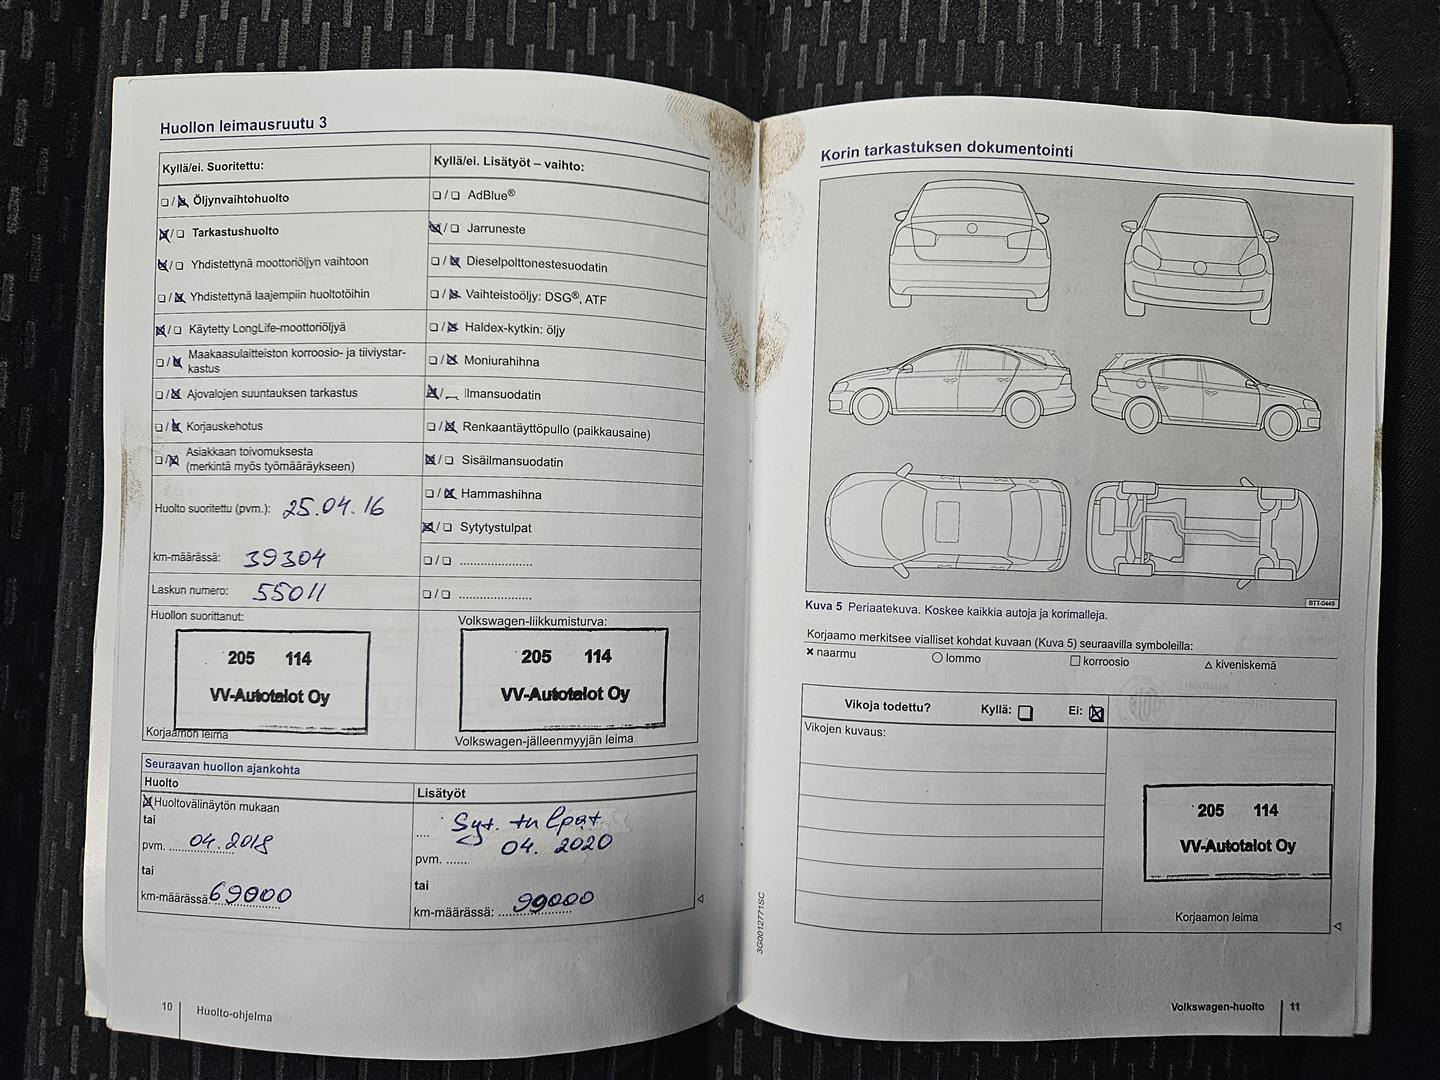 Huollon leimausruutu 3
Kyllä/ei. Suoritettu:
☐/☒ Öljynvaihtohuolto
☒/☐ Tarkastushuolto
☒/☐ Yhdistettynä moottoriöljyn vaihtoon
☐/☒ Yhdistettynä laajempiin huoltotöihin
☒/☐ Käytetty LongLife-moottoriöljyä
☐/☒ Maakaasulaitteiston korroosio- ja tiiviystar-
kastus
☐/☒ Ajovalojen suuntauksen tarkastus
☐/☒ Korjauskehotus
☐/☒ Asiakkaan toivomuksesta
(merkintä myös työmääräykseen)
Huolto suoritettu (pvm.): 25.04.16
km-määrässä: 39304
Laskun numero: 55011
Huollon suorittanut:
205 114
VV-Autotalot Oy
Korjaamon leima
Kyllä/ei. Lisätyöt – vaihto:
☐/☐ AdBlue®
☒/☐ Jarruneste
☐/☒ Dieselpolttonestesuodatin
☐/☒ Vaihteistoöljy: DSG®, ATF
☐/☒ Haldex-kytkin: öljy
☐/☒ Moniurahihna
☒/☐ Ilmansuodatin
☐/☒ Renkaantäyttöpullo (paikkausaine)
☒/☐ Sisäilmansuodatin
☐/☒ Hammashihna
☒/☐ Sytytystulpat
☐/☐ ......................
☐/☐ ......................
Volkswagen-liikkumisturva:
205 114
VV-Autotalot Oy
Volkswagen-jälleenmyyjän leima
Seuraavan huollon ajankohta
Huolto
☒ Huoltovälinäytön mukaan
tai
pvm. 04.2018
tai
km-määrässä: 69000
Lisätyöt
.... Syt. tulpat
pvm. ...... 04. 2020
tai
km-määrässä: 99000
10 Huolto-ohjelma
Korin tarkastuksen dokumentointi
BTT-0449
Kuva 5 Periaatekuva. Koskee kaikkia autoja ja korimalleja.
Korjaamo merkitsee vialliset kohdat kuvaan (Kuva 5) seuraavilla symboleilla:
× naarmu ○ lommo □ korroosio △ kiveniskemä
Vikoja todettu? Kyllä: ☐ Ei: ☒
Vikojen kuvaus:
205 114
VV-Autotalot Oy
Korjaamon leima
3G0012771SC
Volkswagen-huolto 11